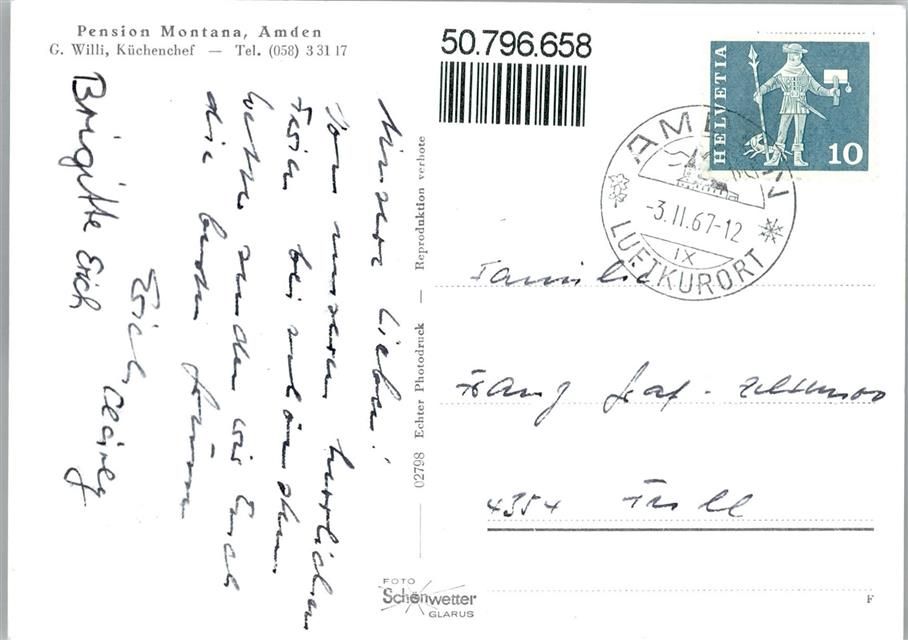 Pension Montana, Amden
G. Willi, Küchenchef — Tel. (058) 3 31 17
50.796.658
HELVETIA
10
AMDEN
-3.II.67-12
IX
LUFTKURORT
Unsere Lieben!
Von unseren herrlichen
Ferien bei schönstem
Wetter senden wir Euch
die besten Grüsse
Erich
Brigitte Erich
02798 Echter Photodruck — Reproduktion verboten
Familie
Franz Graf-
4354
FOTO
Schönwetter
GLARUS
F